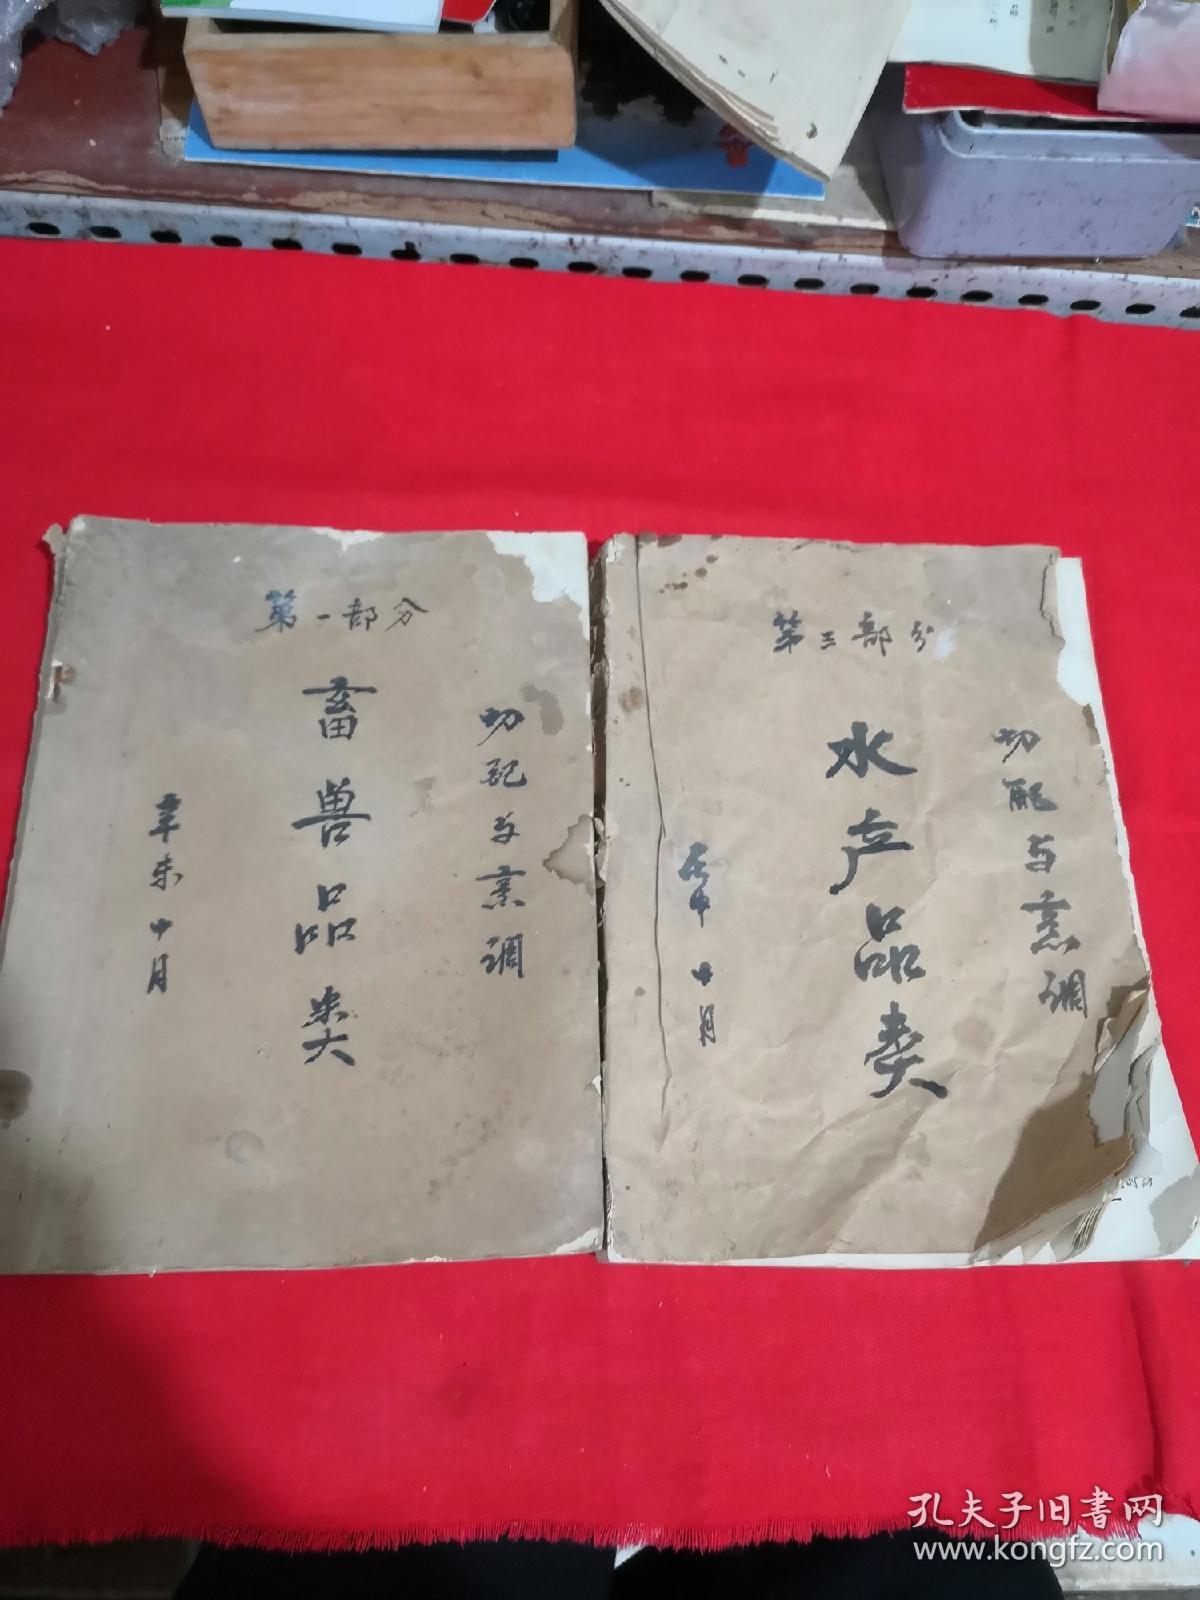 第一部分
切配与烹调
畜兽品类
辛未十月
第三部分
切配与烹调
水产品类
壬申十月
孔夫子旧书网
www.kongfz.com